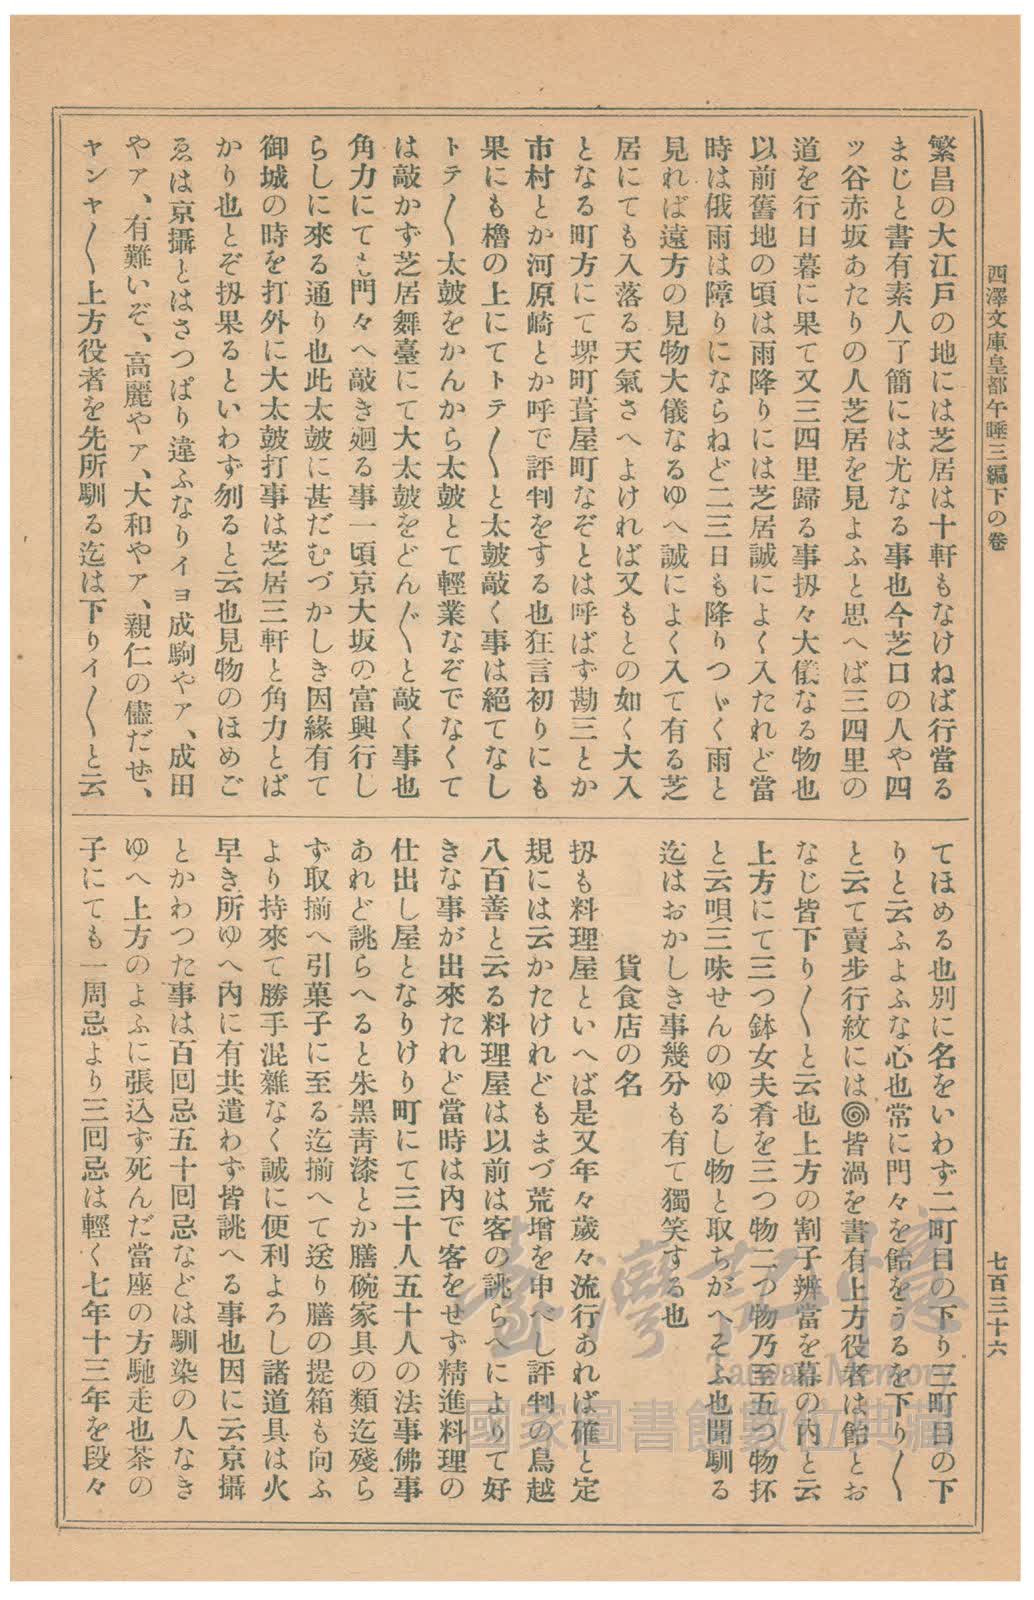 西澤文庫皇都午睡三編下の卷
七百三十六
繁昌の大江戸の地には芝居は十軒もなけねば行當る
まじと書有素人了簡には尤なる事也今芝口の人や四
ッ谷赤坂あたりの人芝居を見よふと思へば三四里の
道を行日暮に果て又三四里歸る事扨々大儀なる物也
以前舊地の頃は雨降りには芝居誠によく入たれど當
時は俄雨は障りにならねど二三日も降りつゞく雨と
見れば遠方の見物大儀なるゆへ誠によく入て有る芝
居にても入落る天氣さへよければ又もとの如く大入
となる町方にて堺町葺屋町なぞとは呼ばず勘三とか
市村とか河原崎とか呼で評判をする也狂言初りにも
果にも櫓の上にてトテ〳〵と太皷敲く事は絕てなし
トテ〳〵太皷をかんから太皷とて輕業なぞでなくて
は敲かず芝居舞臺にて大太皷をどん〴〵と敲く事也
角力にても門々へ敲き廻る事一頃京大坂の富興行し
らしに來る通り也此太皷に甚だむづかしき因緣有て
御城の時を打外に大太皷打事は芝居三軒と角力とば
かり也とぞ扨果るといわず刎ると云也見物のほめご
ゑは京攝とはさつぱり違ふなりイヨ成駒やァ、成田
やァ、有難いぞ、高麗やァ、大和やァ、親仁の儘だぜ、
ヤンヤ〳〵上方役者を先所馴る迄は下りイ〳〵と云
てほめる也別に名をいわず二町目の下り三町目の下
りと云ふよふな心也常に門々を飴をうるを下り〳〵
と云て賣步行紋には皆渦を書有上方役者は飴とお
なじ皆下り〳〵と云也上方の割子辨當を幕の內と云
上方にて三つ鉢女夫肴を三つ物二つ物乃至五つ物抔
と云唄三味せんのゆるし物と取ちがへそふ也聞馴る
迄はおかしき事幾分も有て獨笑する也
貨食店の名
扨も料理屋といへば是又年々歲々流行あれば確と定
規には云かたけれどもまづ荒增を申べし評判の鳥越
八百善と云る料理屋は以前は客の誂らへによりて好
きな事が出來たれど當時は內で客をせず精進料理の
仕出し屋となりけり町にて三十人五十人の法事佛事
あれど誂らへると朱黑靑漆とか膳碗家具の類迄殘ら
ず取揃へ引菓子に至る迄揃へて送り膳の提箱も向ふ
より持來て勝手混雜なく誠に便利よろし諸道具は火
早き所ゆへ內に有共遣わず皆誂へる事也因に云京攝
とかわつた事は百囘忌五十囘忌などは馴染の人なき
ゆへ上方のよふに張込ず死んだ當座の方馳走也茶の
子にても一周忌より三囘忌は輕く七年十三年を段々
臺灣記憶
Taiwan Memory
國家圖書館數位典藏